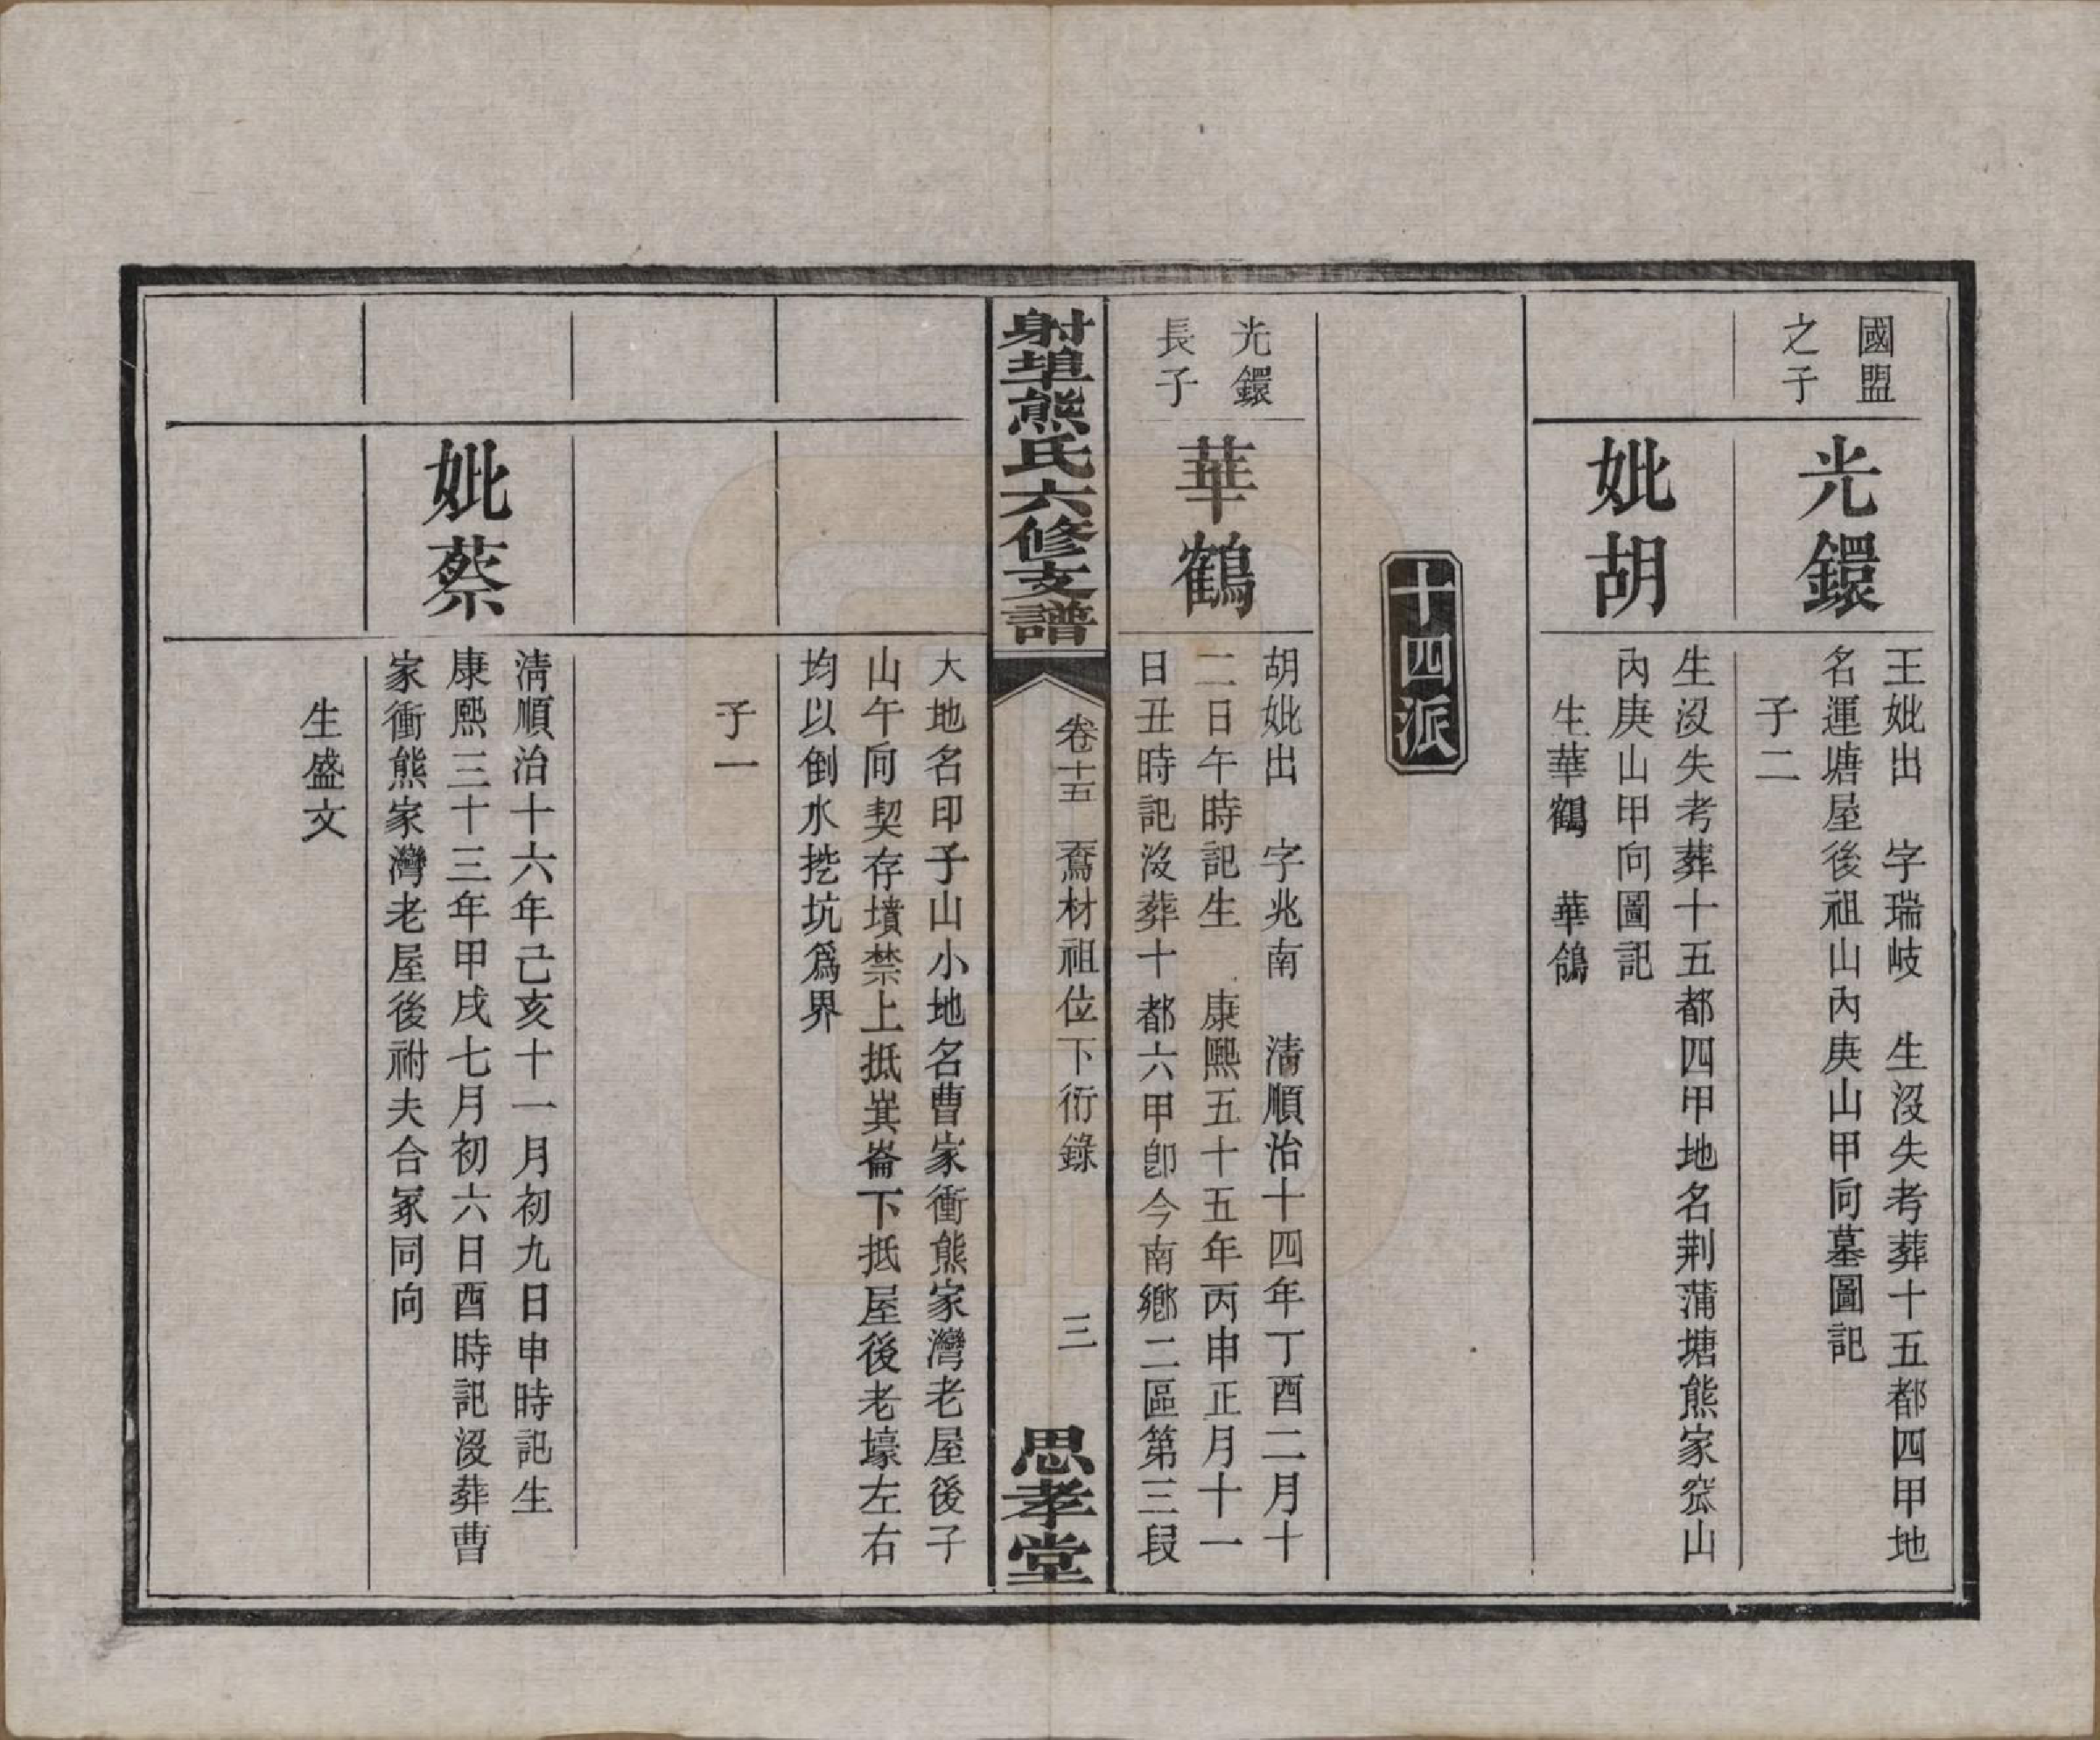 國盟
之子
光鐶
王妣出　字瑞岐　生沒失考葬十五都四甲地
名運塘屋後祖山內庚山甲向墓圖記
子二
妣胡
生沒失考葬十五都四甲地名荆蒲塘熊家窊山
內庚山甲向圖記
生華鶴　華鴿
十四派
光鐶
長子
華鶴
胡妣出　字兆南　清順治十四年丁酉二月十
二日午時記生　康熙五十五年丙申正月十一
日丑時記沒葬十都六甲卽今南鄉二區第三段
射埠熊氏六修支譜
卷十五　鶱材祖位下衍錄　三
思孝堂
大地名印子山小地名曹家衝熊家灣老屋後子
山午向契存墳禁上抵㠱崙下抵屋後老壕左右
均以倒水挖坑爲界
子一
妣蔡
清順治十六年己亥十一月初九日申時記生
康熙三十三年甲戌七月初六日酉時記沒葬曹
家衝熊家灣老屋後祔夫合冢同向
生盛文